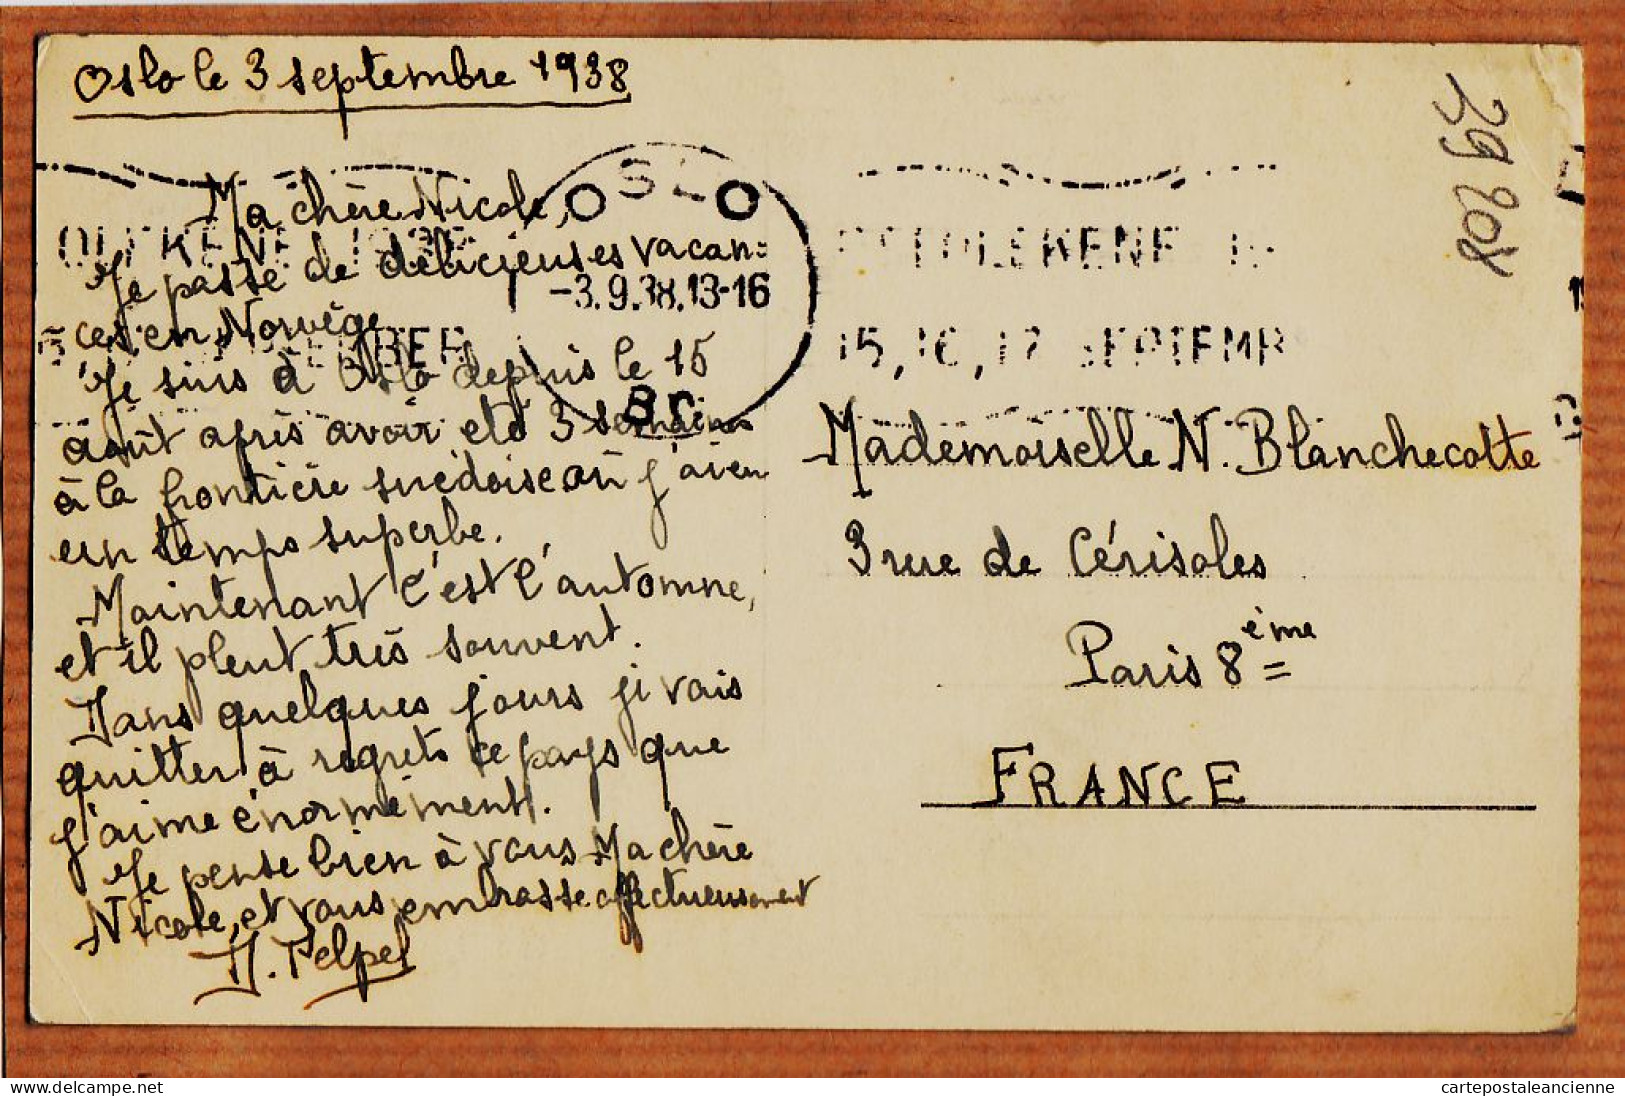 Oslo le 3 septembre 1938
Ma chère Nicole,
Je passe de délicieuses vacan=
ces en Norvège
Je suis à Oslo depuis le 15
août après avoir eté 3 semaines
à la frontière suédoise où j'ai eu
un temps superbe.
Maintenant c'est l'automne,
et il pleut très souvent.
Dans quelques jours je vais
quitter à regrets ce pays que
j'aime énormément.
Je pense bien à vous, Ma chère
Nicole, et vous embrasse affectueusement
OSLO
-3.9.38.13-16
BR
15, 16, 17 SEPTEMB
29 208
Mademoiselle N. Blanchecotte
3 rue de Cérisoles
Paris 8 ème
FRANCE
cartepostaleancienne